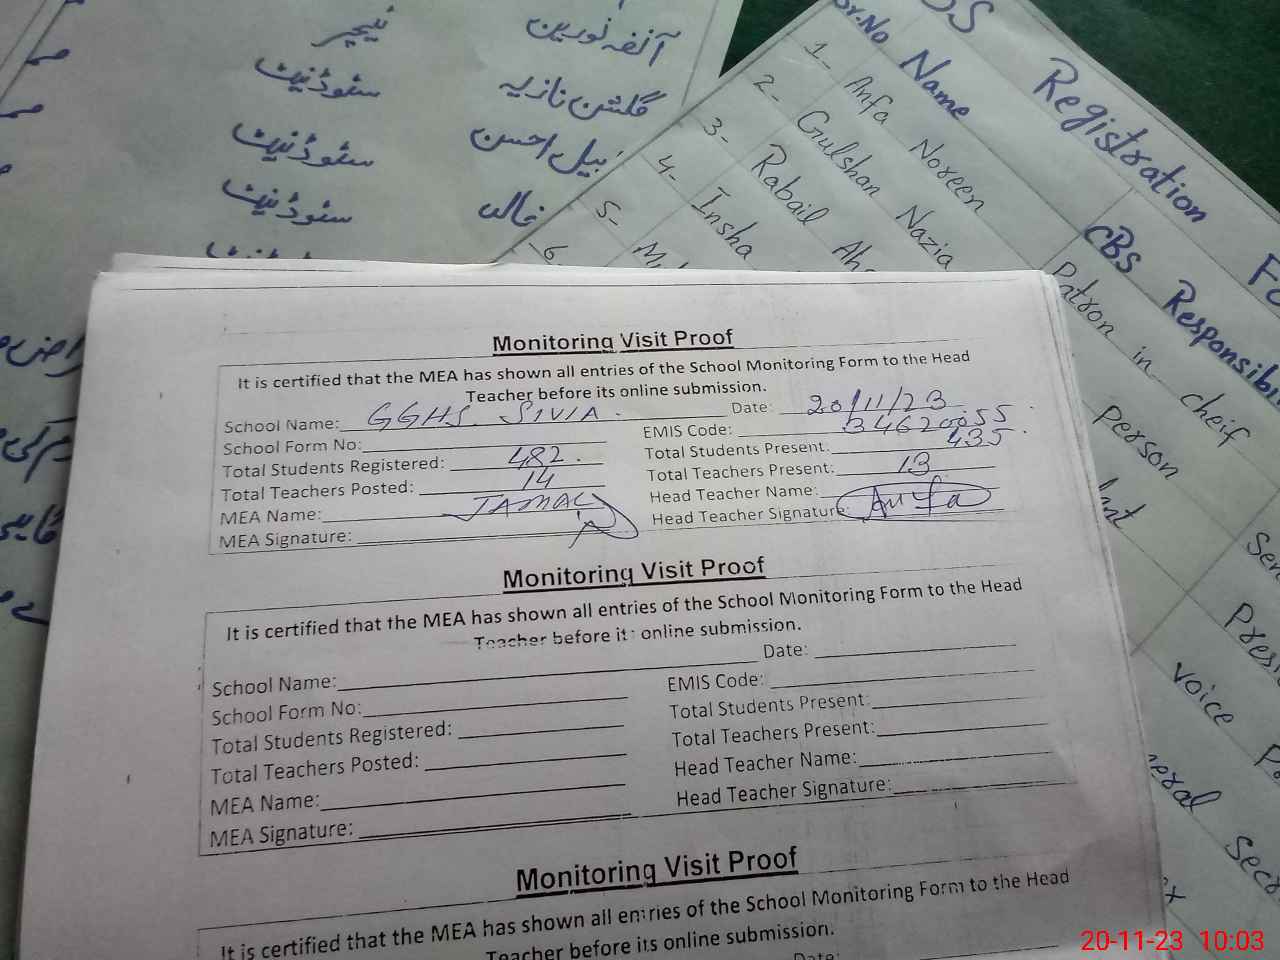 آنفہ نورین ٹیچر
گلشن نازیہ سٹوڈنیٹ
سٹوڈنیٹ
سٹوڈنیٹ
Registration
Sr.No Name CBS Responsibil
1- Anfa Noreen Patron in cheif
2- Gulshan Nazia Person
3- Rabail
4- Insha
5-
6
voice
Monitoring Visit Proof
It is certified that the MEA has shown all entries of the School Monitoring Form to the Head
Teacher before its online submission.
School Name: GGHS SIVIA. Date: 20/11/23
School Form No: EMIS Code: 34620055
Total Students Registered: 482. Total Students Present: 435
Total Teachers Posted: 14 Total Teachers Present: 13
MEA Name: JAMAL Head Teacher Name:
MEA Signature: Head Teacher Signature: Anfa
Monitoring Visit Proof
It is certified that the MEA has shown all entries of the School Monitoring Form to the Head
Teacher before its online submission.
School Name: Date:
School Form No: EMIS Code:
Total Students Registered: Total Students Present:
Total Teachers Posted: Total Teachers Present:
MEA Name: Head Teacher Name:
MEA Signature: Head Teacher Signature:
Monitoring Visit Proof
It is certified that the MEA has shown all entries of the School Monitoring Form to the Head
Teacher before its online submission.
Date:
20-11-23 10:03